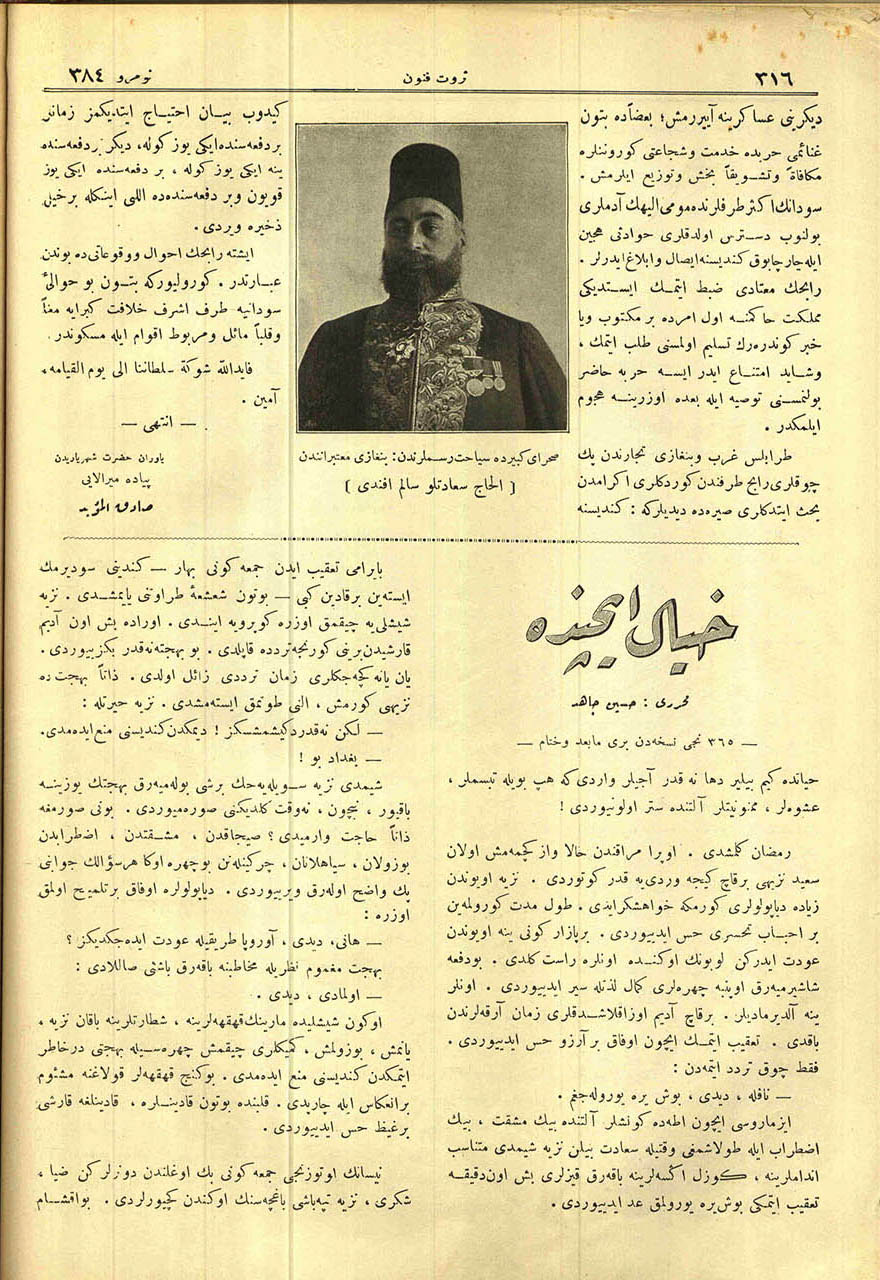 ٣١٦
ثروت فنون
نومرو ٣٨٤
ديكرينى عساكرينه آييررمش؛ بعضاًده بتون
غنائمى حربده خدمت وشجاعتى كوروننلره
مكافاةً وتشويقاً بخش وتوزيع ايلرمش .
سودانك اكثر طرفلرنده مومى اليهك آدملرى
بولنوب دسترس اولدقلرى حوادثى هجين
ايله جارچابوق كنديسنه ايصال وابلاغ ايدرلر .
رابحك معتادى ضبط ايتمك ايستديكى
مملكت حاكمنه اول امرده بر مكتوب ويا
خبر كوندره رك تسليم اولمسنى طلب ايتمك ،
وشايد امتناع ايدر ايسه حربه حاضر
بولنمسنى توصيه ايله بعده اوزرينه هجوم
ايلمكدر .
طرابلس غرب وبنغازى تجارندن پك
چوقلرى رابح طرفندن كوردكلرى اكرامدن
بحث ايتدكارى صيره ده ديديلركه : كنديسنه
صحراى كبيرده سياحت رسملرندن: بنغازى معتبرانندن
( الحاج سعادتلو سالم افندى )
كيدوب بيان احتياج ايتديكمز زمانر
بردفعه سنده ايكى يوز كوله، ديكر بر دفعه سنده
ينه ايكى يوز كوله ، بر دفعه سنده ايكى يوز
قويون وبر دفعه سنده ده اللى اينكله برخيل
ذخيره ويردى .
ايشته رابحك احوال ووقوعاتى ده بوندن
عبارتدر . كورولييوركه بتون بو حوالئ
سودانيه طرف اشرف خلافت كبرايه معناً
وقلباً مائل ومربوط اقوام ايله مسكوندر .
فايدالله شوكة سلطاننا الى يوم القيامه،
آمين .
— انتهى —
ياوران حضرت شهرياريدن
پياده ميرالايى
صادق المؤيد
خيال ايچنده
محررى : حسين جاهد
— ٣٦٥ نجى نسخه دن برى مابعد وختام —
حياتده كيم بيلير دها نه قدر آجيلر واردى كه هپ بويله تبسملر ،
عشوه لر ، ممنونيتلر آلتنده ستر اولونيوردى !
رمضان كلمشدى . اوپرا مراقندن حالا واز كچمه مش اولان
سعيد نزيهى برقاچ كيجه وردى يه قدر كوتوردى . نزيه اويوندن
زياده دياپولولرى كورمكه خواهشكرايدى . طول مدت كورولمه ين
بر احباب تحسرى حس ايدييوردى . برپازار كونى ينه اويوندن
عودت ايدركن لوبونك اوكنده اونلره راست كلدى . بودفعه
شاشيرميه رق اوپنبه چهره لرى كمال لذتله سير ايدييوردى . اونلر
ينه آلديرماديلر . برقاچ آديم اوزاقلاشدقلرى زمان آرقه لرندن
باقدى . تعقيب ايتمك ايچون اوفاق بر آرزو حس ايدييوردى .
فقط چوق تردد ايتمه دن :
— نافله ، ديدى ، بوش يره يوروله جغم .
ايزماروسى ايچون اطه ده كونشلر آلتنده بيك مشقت ، بيك
اضطراب ايله طولاشمغى وقتيله سعادت بيلن نزيه شيمدى متناسب
اندامارينه ، كوزل اكسه لرينه باقه رق قيزلرى بش اون دقيقه
تعقيب ايتمكى بوش يره يورولمق عد ايدييوردى .
بايرامى تعقيب ايدن جمعه كونى بهار — كندينى سوديرمك
ايسته ين برقادين كبى — بوتون شعشعهٔ طراوتنى يايمشدى . نزيه
شيشلى يه چيقمق اوزره كوپرويه ايندى . اوراده بش اون آديم
قارشيدن برينى كورنجه تردده قاپلدى . بو بهجته نه قدر بكزييوردى .
يان يانه كچه جكلرى زمان ترددى زائل اولدى . ذاتاً بهجت ده
نزيهى كورمش ، الني طوتمق ايسته مشدى . نزيه حيرتله :
— لكن نه قدر دكيشمشسكز ! ديمكدن كنديسنى منع ايده مدى.
— بغداد بو !
شيمدى نزيه سويله يه جك برشى بوله ميه رق بهجتك يوزينه
باقيور ، نيچون ، نه وقت كلديكنى صوره ميوردى . بونى صورمغه
ذاتاً حاجت وارميدى؟ صيجاقدن ، مشقتدن ، اضطرابدن
بوزولان ، سياهلانان ، چركينله نن بو چهره اوكا هرسؤالك جوابنى
پك واضح اوله رق ويرييوردى . دياپولولره اوفاق برتلميح اولمق
اوزره :
— هانى، ديدى ، آوروپا طريقيله عودت ايده جكديكز ؟
بهجت مغموم نظريله مخاطبنه باقه رق باشنى صاللادى :
— اولمادى ، ديدى .
اوكون شيشليده مارينك قهقهه لرينه ، شطارتلرينه باقان نزيه ،
يانمش ، بوزولمش ، كميكلرى چيقمش چهره سيله بهجتى درخاطر
ايتمكدن كنديسنى منع ايده مدى . بوكنج قهقهه لر قولاغنه مشئوم
برانعكاس ايله چارپدى . قلبنده بوتون قادينلره ، قادينلغه قارشى
برغيظ حس ايدييوردى .
نيسانك اوتوزنجى جمعه كونى بك اوغلندن دونرلركن ضيا ،
شكرى ، نزيه تپه باشى باغچه سنك اوكندن كچيورلردى . بواقشام